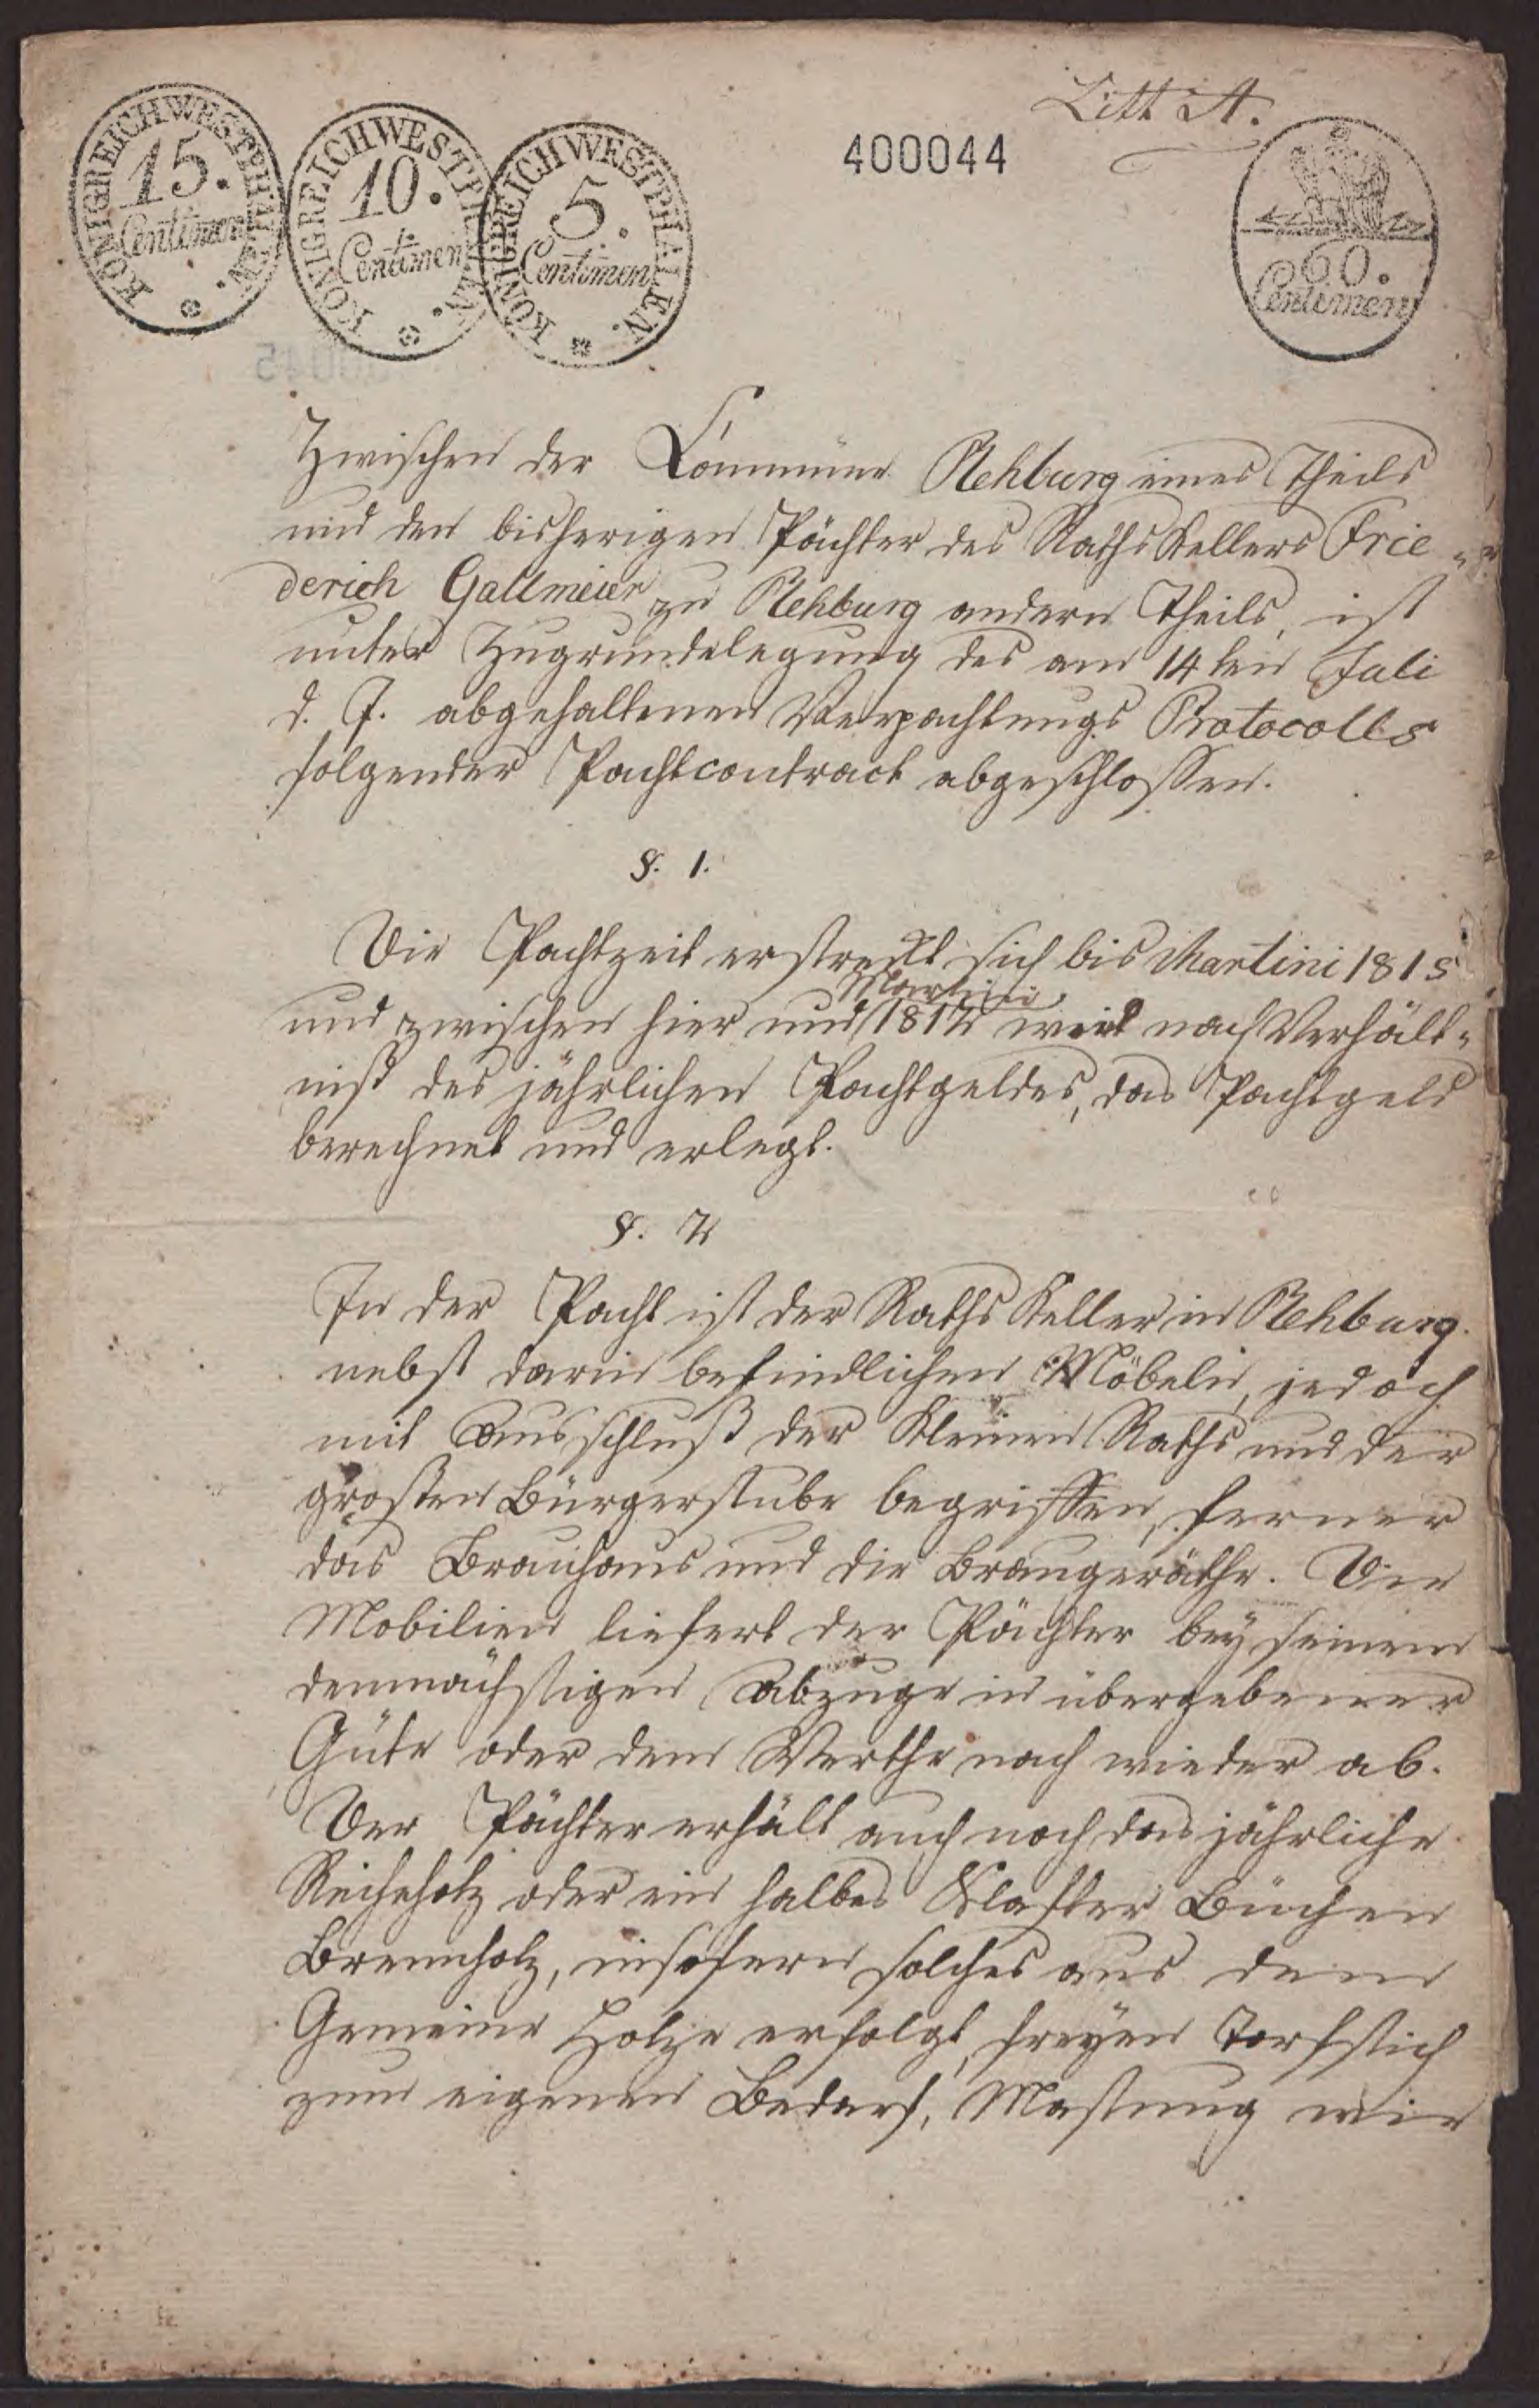 Litt A.
400044
KÖNIGREICH WESTPHALEN.
15.
Centimen
KÖNIGREICH WESTPHALEN.
10.
Centimen
KÖNIGREICH WESTPHALEN.
5.
Centimen
60.
Centimen
Zwischen der Commüne Rehburg eines Theils
und den bisherigen Pächter des Raths Kellers Frie-
derich Gallmeier zu Rehburg andern Theils, ist
unter Zugrundelegung des am 14ten Juli
d. J. abgehaltenen Verpachtungs Protocolls
folgender Pachtcontract abgeschlossen.
§. 1.
Die Pachtzeit erstreckt sich bis Martini 1815
und zwischen hier und Martini 1812 wird nach Verhält-
niß des jährlichen Pachtgeldes, das Pachtgeld
berechnet und erlegt.
§. 2
In der Pacht ist der Raths Keller in Rehburg
nebst darin befindlichen Möbeln, jedoch
mit Ausschluß der kleinen Raths und der
großen Bürgerstube begriffen, ferner
das Brauhaus und die Braugeräthe. Die
Mobilien liefert der Pächter bey seinem
demnächstigen Abzuge in übergebener
Güte oder dem Werthe nach wieder ab.
Der Pächter erhält auch noch das jährliche
Reiheholz oder ein halbes Klafter Büchen
Brennholz, insofern solches aus dem
Gemeine Holze erfolgt, freyen Torfstich
zum eigenen Bedarf, Mastung wie